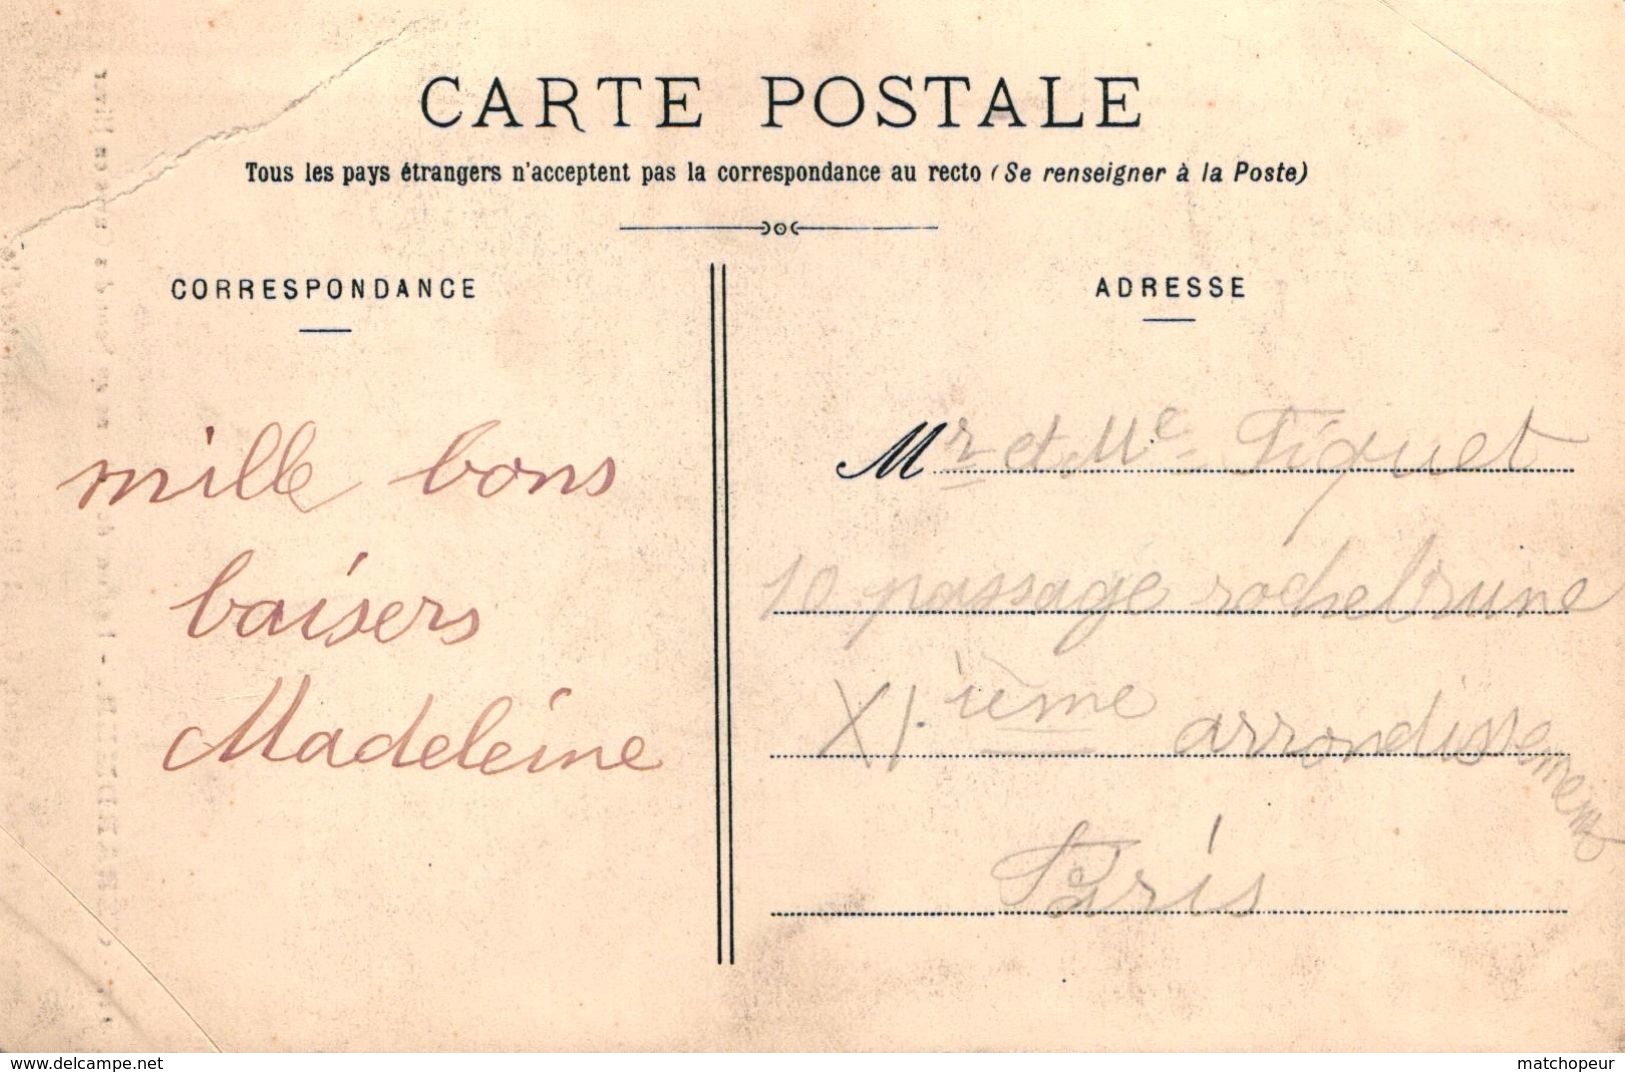 CARTE POSTALE
Tous les pays étrangers n'acceptent pas la correspondance au recto (Se renseigner à la Poste)
CORRESPONDANCE
mille bons
baisers
Madeleine
ADRESSE
Mr et Me Piquet
10 passage rochebrune
XI ième arrondissement
Paris
www.delcampe.net
matchopeur